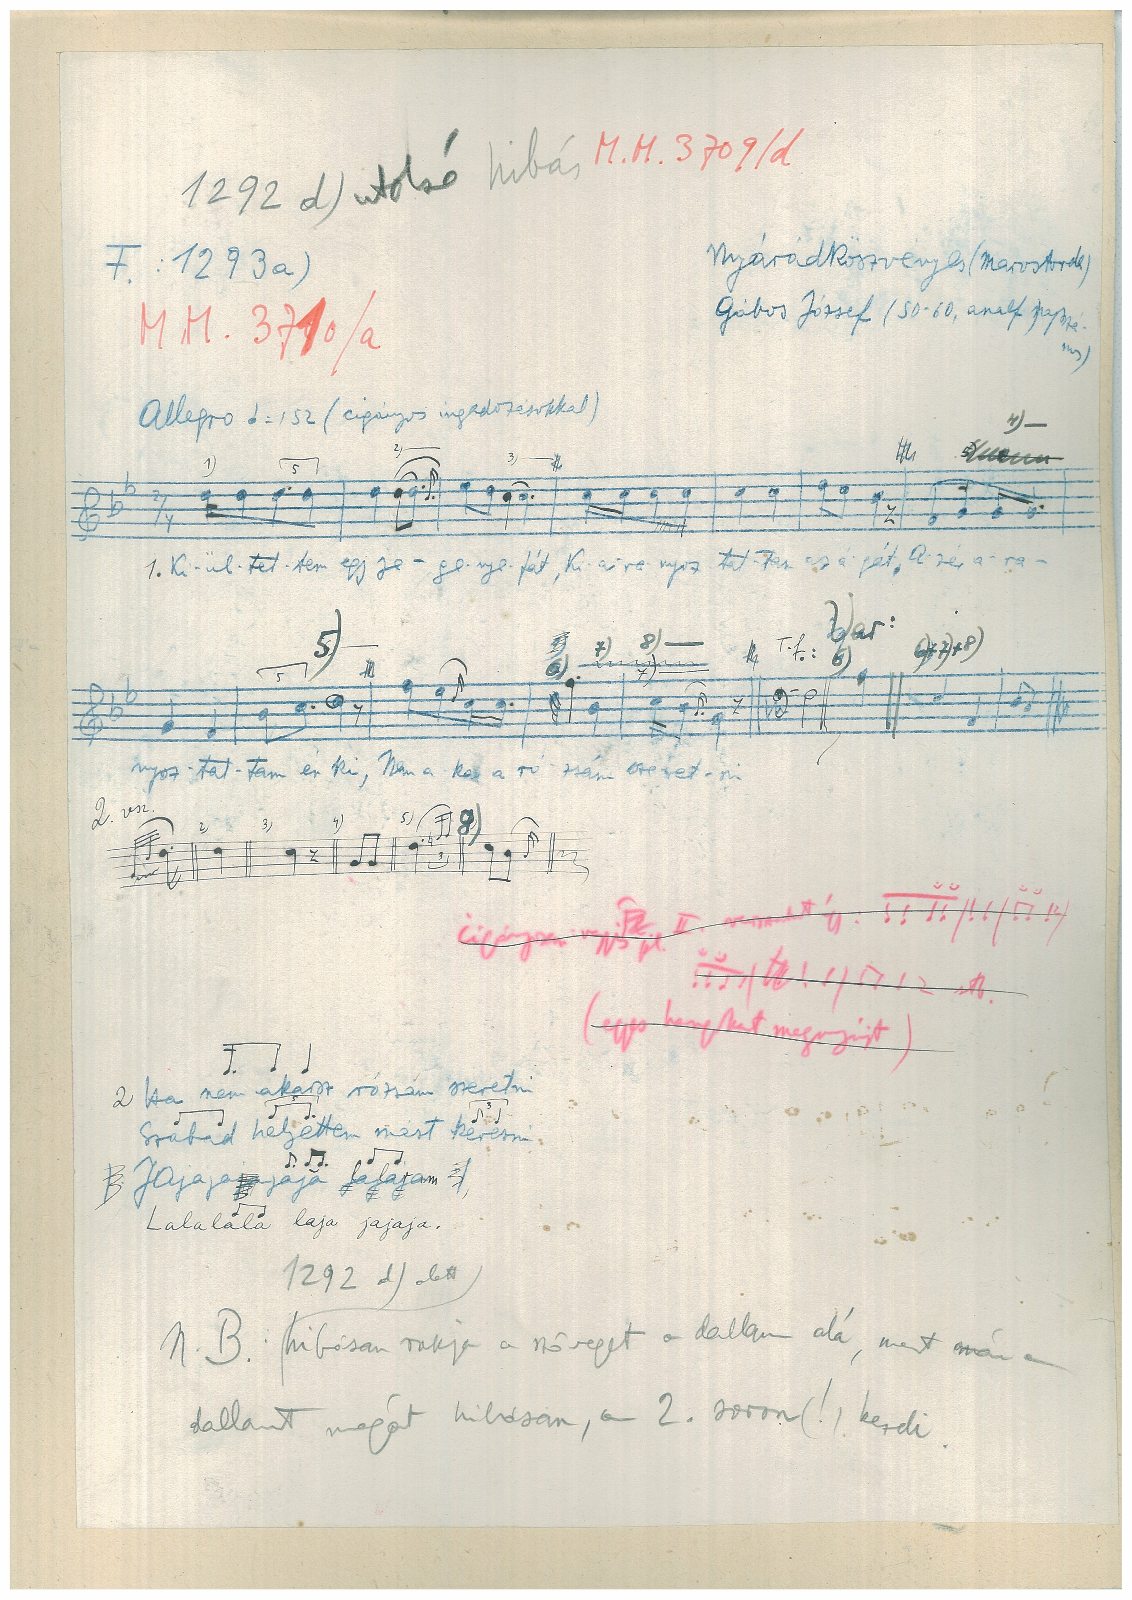 1292 d) utolsó hibás M.M. 3709/d
F. : 1293a)
M.M. 3710/a
Nyárádköszvényes (Marostorda)
Gábos József (50-60, analf.
Allegro = 152 (cigányos ingadozásokkal)
1) 5 2) 3) 4)
2/4
1. Ki-ül-tet-tem egy je-ge-nye-fát, Ki-a-ra-nyoz-tat-tam az á-gát, A-zér a-ra-
5 5) 6) 7) 8) 7) T.f.: var: 6) 6)+7)+8)
nyoz-tat-tam én ki, Nem a-kar a ró-zsám szeret-ni
2. vsz.
2) 3) 4) 5) 8)
3
cigányosan II
stb.
(egyes hangokat megnyújt)
2 Ha nem akarsz rózsám szeretni
Szabad helyettem mást keresni
Lalalala laja jajaja.
1292 d) alatt
N.B.: hibásan rakja a szöveget a dallam alá, mert a
dallamot magát hibásan, a 2. soron (!) kezdi.